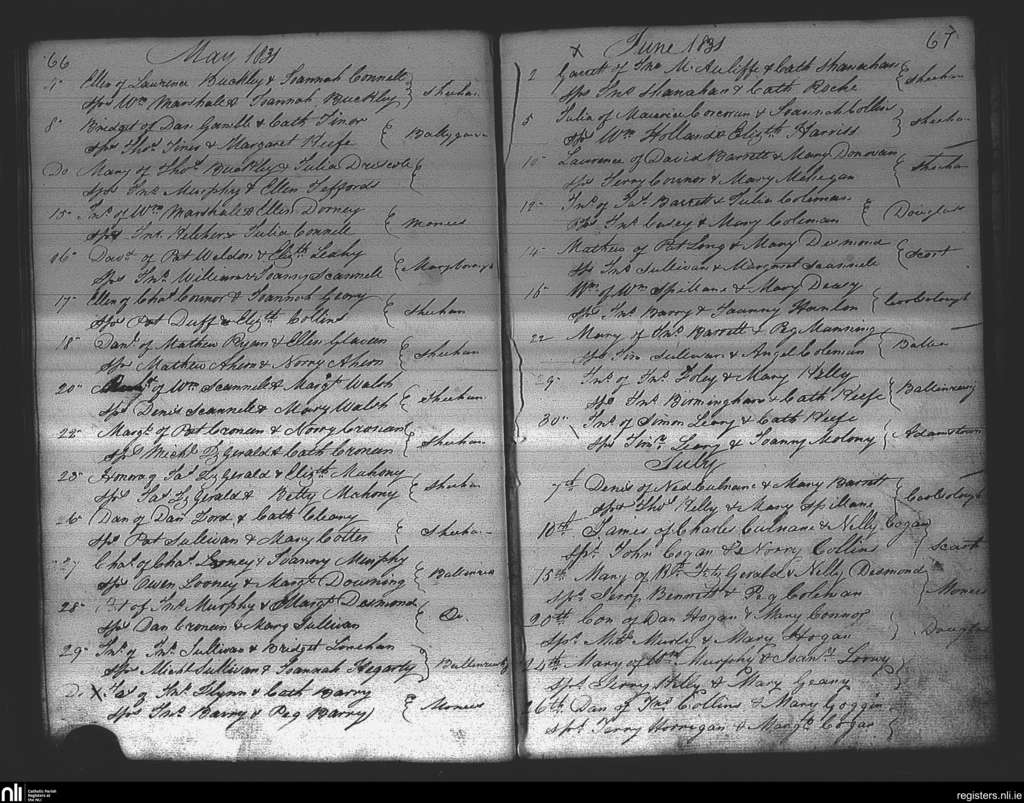 66 May 1831
Ellen of Laurence Buckley & Joannah Connell
Sps Wm Marshall & Joannah Buckley } Sheehan
8 Bridget of Dan Gamble & Cath
Sps Thos & Margaret Keefe
Do Mary of Thos Buckley & Julia Driscoll
Sps Jno Murphy & Ellen
15 Jno of Wm Marshall & Ellen Dorney
Sps Jno Kelcher & Julia Connell } Monees
16 Davd of Pat Weldon & Elizth Leahy
Sps Jno Williams & Joanny Scannell } Maryborough
17 Ellen of Chas Connor & Joannah Geary
Sps Pat Duff & Elizth Collins } Sheehan
18 Danl of Mathew Ryan & Ellen Glavin
Sps Mathew Ahern & Norry Ahern } Sheehan
20 of Wm Scannell & Margt Walsh
Sps Denis Scannell & Mary Walsh } Sheehan
22 Margt of Pat Cronin & Norry Crosian
Sps Michl Fz Gerald & Cath Cronin } Sheehan
23 Honora of Jas Fz Gerald & Elizth Mahony
Sps Jas Fz Gerald & Betty Mahony } Sheehan
26 Dan of Dan Ford & Cath Cleary
Sps Pat Sullivan & Mary Cotter } Sheehan
27 Chas of Chas Looney & Joanny Murphy
Sps Owen Looney & Margt Downing } Ballinrea
28 Pat of Jno Murphy & Margt Desmond
Sps Dan Cronin & Mary Sullivan } Do.
29 Jno of Jno Sullivan & Bridget Linehan
Sps Michl Sullivan & Joannah Hegarty
Do X Jas of Jno Flynn & Cath Barry
Sps Jno Barry & Peg Barry } Monees
X June 1831 67
2 Garrett of Jno McAuliffe & Cath Shanahan
Sps Jno Shanahan & Cath Roche } Sheehan
5 Julia of Maurice Corcoran & Joannah Collins
Sps Wm Holland & Elizth Harriss } Sheehan
10 Laurence of David Barrett & Mary Donovan
Sps Terry Connor & Mary Mehegan } Sheehan
12 Jno of Jas Barrett & Julia Coleman
Sps Jno Casey & Mary Coleman } Douglass
14 Mathew of Pat Long & Mary Desmond
Sps Jno Sullivan & Margaret Scannell } Scart
16 Wm of Wm Spillane & Mary Deasy
Sps Jno Barry & Joanny Hanlon } Coolsough
22 Mary of Jno Barrett & Peg Manning
Sps Jim Sullivan & Angel Coleman
29 Jno of Jno Foley & Mary Kelly
Sps Jno Birmingham & Cath Keefe
30 Jno of Simon Leary & Cath Keefe
Sps Leary & Joanny Molony } Adamstown
July
7th Denis of Ned Culnane & Mary Barrett
Sps Thos Kelly & Mary Spillane } Coolsough
10th James of Charles Culnane & Nelly Cogan
Sps John Cogan & Norry Collins } Scart
15th Mary of Fitz Gerald & Nelly Desmond
Sps Jerry Bennett & Peg Coleman } Monees
20th Con of Dan Hogan & Mary Connor
Sps Murly & Mary Hogan } Douglas
24th Mary of Wm Murphy & Leary
Sps Jerry Kelly & Mary Geany
26th Dan of Jas Collins & Mary Goggin
Sps Terry Horrigan & Margt Cogan
nli Catholic Parish
Registers at
the NLI
registers.nli.ie